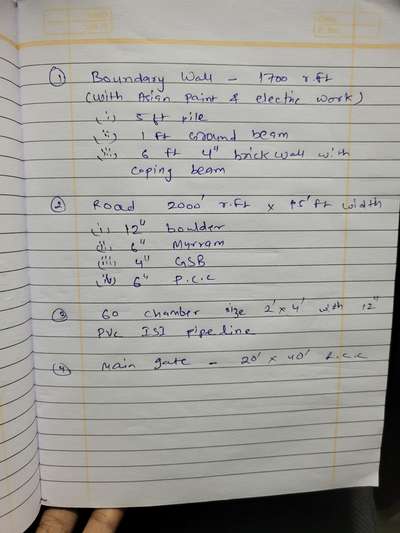 ① Boundary Wall - 1700 r.ft
(with Asian Paint & electric work)
(i) 5 ft pile
(ii) 1 ft Ground beam
(iii) 6 ft 4" brick wall with
coping beam
② Road 2000' r.ft × 15' ft width
(i) 12" boulder
(ii) 6" Murram
(iii) 4" GSB
(iv) 6" P.C.C
③ 60 chamber size 2' × 4' with 12"
PVC ISI pipe line
④ Main gate - 20' × 40' R.C.C